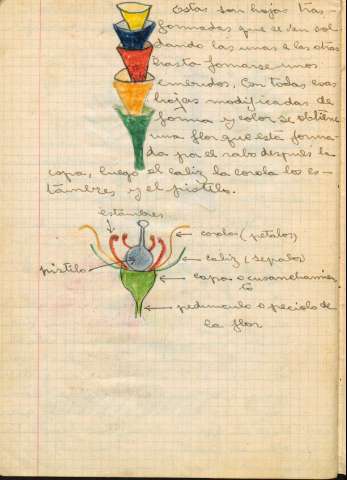 Estas son hojas trans
formadas que se van sol
dando las unas a las otras
hasta formarse unos
embudos. Con todas esas
hojas modificadas de
forma y color se obtiene
una flor que está forma-
da por el rabo después la
copa, luego el caliz la corola los es-
támbres y el pistilo.
estámbres
corola (petalos)
caliz (sepalos)
pistilo
copa o ensanchamien
to
pedunculo o peciolo de
la flor